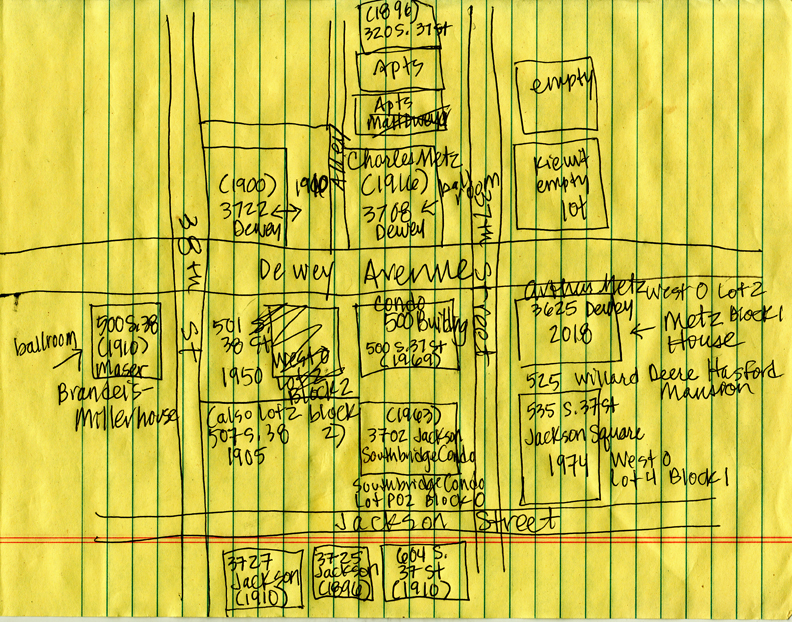 (1896)
320 S. 37 St
Apts
Apts
empty
Kiewit
empty
lot
Alley
Charles Metz
(1916)
3708
Dewey
(1900)
3722
Dewey
38th St
37th Street
Dewey Avenue
500 S. 38
(1910)
Maser
ballroom
Brandeis-
Millerhouse
501 S.
38 St
1950
West O
Lot 2
Block 2
Condo
500 Building
500 S. 37 St
(1969)
Arthur Metz
3625 Dewey
2018
West O Lot 2
Block 1
Metz
House
525 Willard Deere Hosford
Mansion
(also Lot 2 block
2)
507 S. 38
1905
(1963)
3702 Jackson
Southbridge Condo
Southbridge Condo
Lot P02 Block O
535 S. 37 St
Jackson Square
1974
West O
Lot 4 Block 1
Jackson Street
3727
Jackson
(1910)
3725
Jackson
(1896)
604 S.
37 St
(1910)